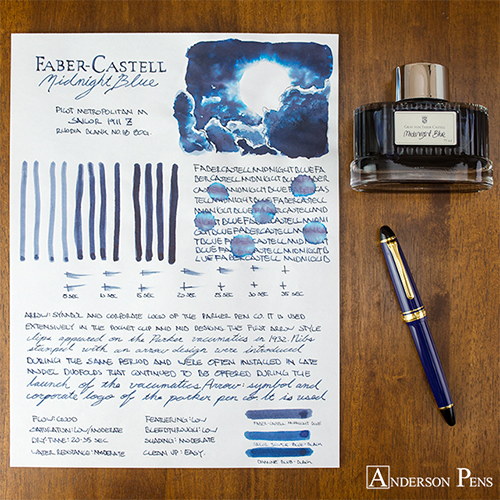 FABER-CASTELL
Midnight Blue
PILOT METROPOLITAN M
SAILOR 1911 Z
RHODIA BLANK NO.18 80G.
FABERCASTELL MIDNIGHT BLUE FA
BERCASTELL MIDNIGHT BLUE FABER
CASTELL MIDNIGHT BLUE FABERCAS
5 SEC 10 SEC 15 SEC 20 SEC 25 SEC 30 SEC 35 SEC
ARROW: SYMBOL AND CORPORATE LOGO OF THE PARKER PEN CO. IT IS USED
EXTENSIVELY IN THE POCKET CLIP AND NIB DESIGNS. THE FIRST ARROW STYLE
clips appeared on the Parker vacumatics in 1932. Nibs
stamped with an arrow design were introduced
DURING THE SAME PERIOD AND WERE OFTEN INSTALLED IN LATE
MODEL DUOFOLDS THAT CONTINUED TO BE OFFERED DURING THE
launch of the vacumatics Arrow: symbol and
corporate logo of the parker pen co. It is used
FLOW: GOOD
SATURATION: LOW/MODERATE
DRY TIME: 20-35 SEC
WATER RESISTANCE: MODERATE
FEATHERING: LOW
BLEEDTHROUGH: LOW
SHADING: MODERATE
CLEAN UP: EASY.
FABER-CASTELL MIDNIGHT BLUE
DIAMINE BLUE-BLACK
GRAF VON FABER-CASTELL
Midnight Blue
ANDERSON PENS